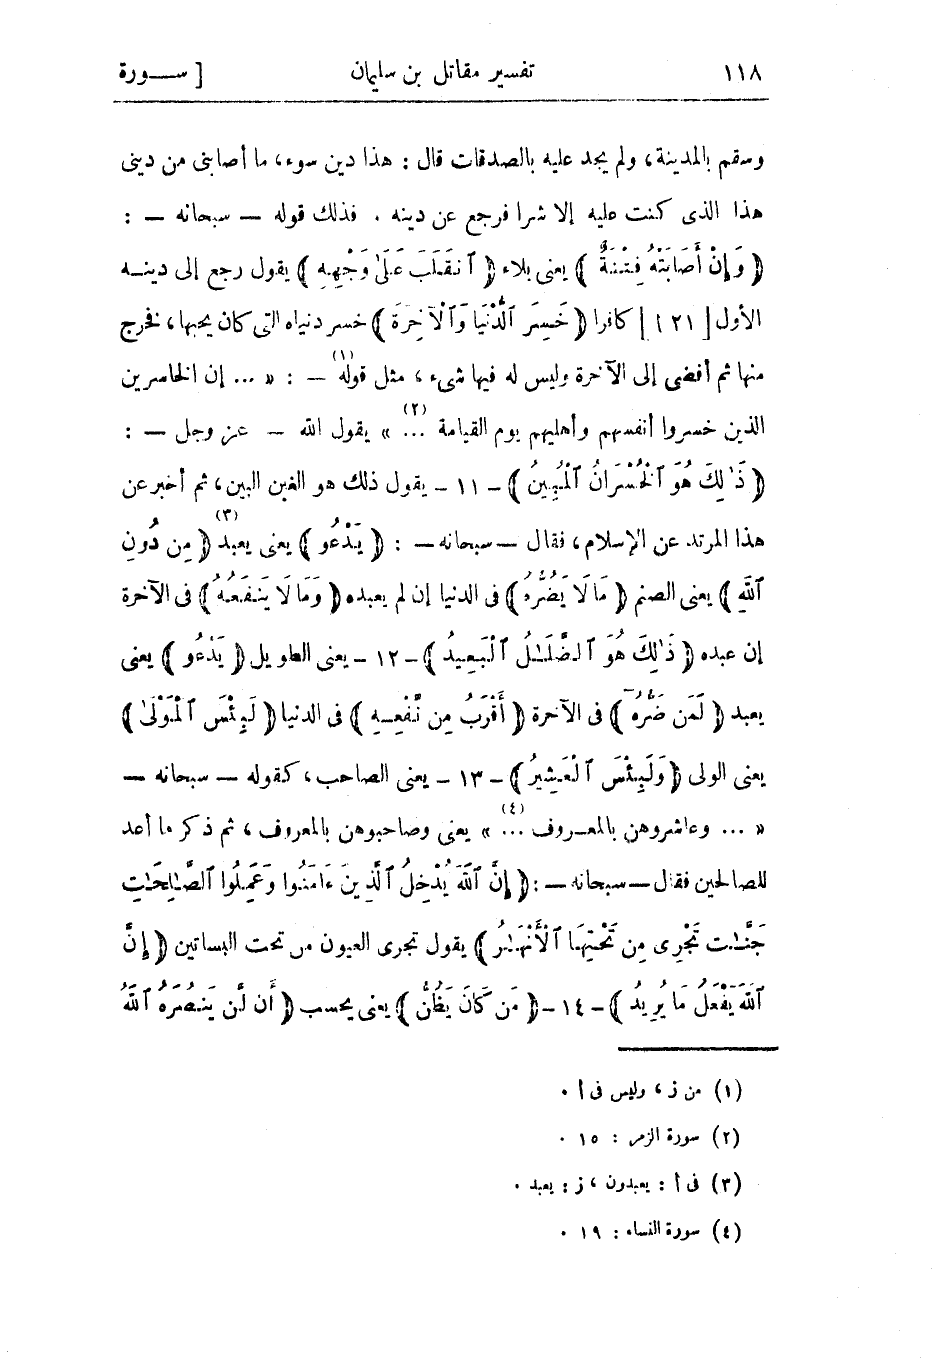 ١١٨ تفسير مقاتل بن سليمان [ ســورة
وسقم بالمدينة، ولم يجد عليه بالصدقات قال : هذا دين سوء، ما أصابنى من دينى
هذا الذى كنت عليه إلا شرا فرجع عن دينه . فذلك قوله — سبحانه — :
﴿ وَإِنْ أَصَابَتْهُ فِتْنَةٌ ﴾ يعنى بلاء ﴿ ٱنقَلَبَ عَلَىٰ وَجْهِهِ ﴾ يقول رجع إلى دينــه
الأول [ ٢١ أ ] كافرا ﴿ خَسِرَ ٱلدُّنْيَا وَٱلْآخِرَةَ ﴾ خسر دنياه التى كان يحبها، فخرج
منها ثم أفضى إلى الآخرة وليس له فيها شىء، مثل قوله (١) — : « ... إن الخاسرين
الذين خسروا أنفسهم وأهليهم يوم القيامة ... (٢) » يقول الله — عز وجل — :
﴿ ذَٰلِكَ هُوَ ٱلْخُسْرَانُ ٱلْمُبِينُ ﴾ - ١١ - يقول ذلك هو الغبن البين، ثم أخبر عن
هذا المرتد عن الإسلام، فقال — سبحانه — : ﴿ يَدْعُو ﴾ يعنى يعبد (٣) ﴿ مِن دُونِ
ٱللَّهِ ﴾ يعنى الصنم ﴿ مَا لَا يَضُرُّهُ ﴾ فى الدنيا إن لم يعبده ﴿ وَمَا لَا يَنفَعُهُ ﴾ فى الآخرة
إن عبده ﴿ ذَٰلِكَ هُوَ ٱلضَّلَٰلُ ٱلْبَعِيدُ ﴾ - ١٢ - يعنى الطويل ﴿ يَدْعُو ﴾ يعنى
يعبد ﴿ لَمَن ضَرُّهُ ﴾ فى الآخرة ﴿ أَقْرَبُ مِن نَّفْعِهِ ﴾ فى الدنيا ﴿ لَبِئْسَ ٱلْمَوْلَىٰ ﴾
يعنى الولى ﴿ وَلَبِئْسَ ٱلْعَشِيرُ ﴾ - ١٣ - يعنى الصاحب، كقوله — سبحانه —
« ... وعاشروهن بالمعـروف ... (٤) » يعنى وصاحبوهن بالمعروف، ثم ذكر ما أعد
للصالحين فقال — سبحانه — : ﴿ إِنَّ ٱللَّهَ يُدْخِلُ ٱلَّذِينَ ءَامَنُوا وَعَمِلُوا ٱلصَّٰلِحَٰتِ
جَنَّٰتٍ تَجْرِى مِن تَحْتِهَا ٱلْأَنْهَٰرُ ﴾ يقول تجرى العيون من تحت البساتين ﴿ إِنَّ
ٱللَّهَ يَفْعَلُ مَا يُرِيدُ ﴾ - ١٤ - ﴿ مَن كَانَ يَظُنُّ ﴾ يعنى يحسب ﴿ أَن لَّن يَنصُرَهُ ٱللَّهُ
(١) من ز، وليس فى أ .
(٢) سورة الزمر : ١٥ .
(٣) فى أ : يعبدون، ز : يعبد .
(٤) سورة النساء : ١٩ .